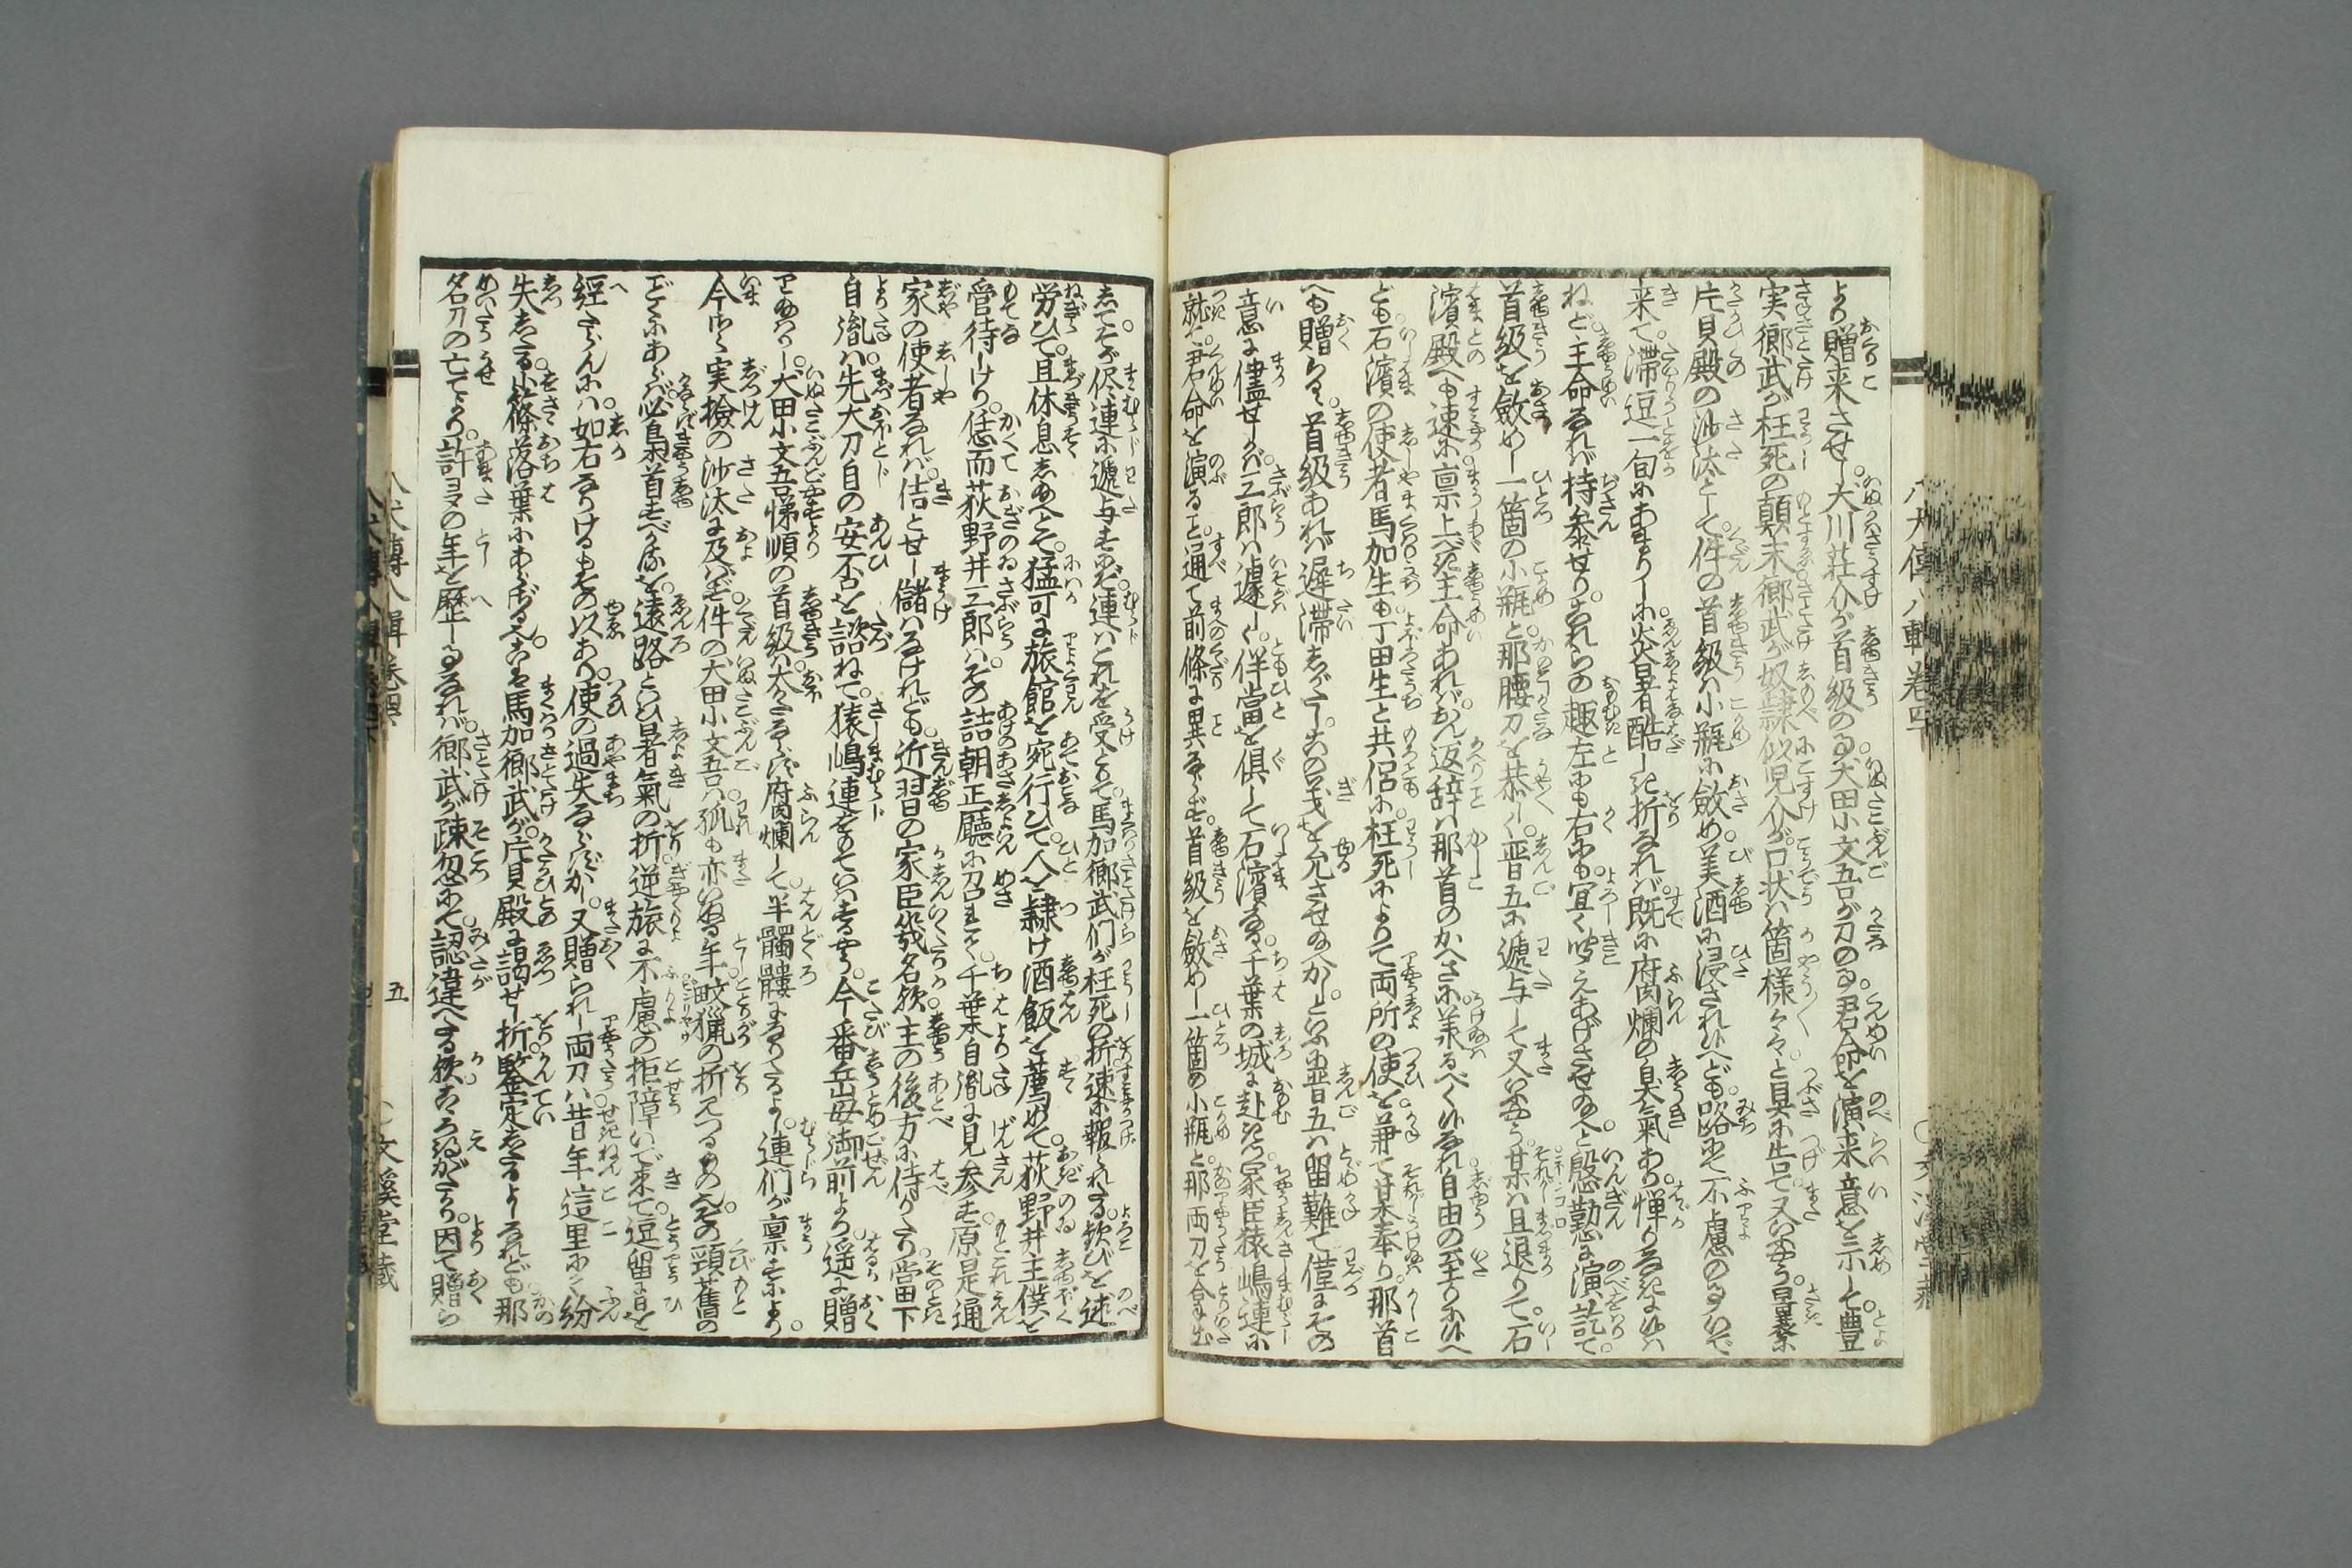 より贈来させし犬川荘介が首級の事犬田小文吾が刀の事君命を演来意を示して豊
実郷武が枉死の顛末郷武が奴隷似児介が口状は箇様々々と具に告て又いふやう曩に
片貝殿の沙汰として件の首級は小瓶に斂め美酒に浸され候へども路にて不慮の事いで
来て滞逗一旬にあまりしに炎暑酷しき折なれば既に腐爛の臭気あり憚りあるに候は
ねど主命なれば持参せりこれらの趣左にも右にも宜く聞えあげさせ給へと慇懃に演訖て
首級を斂めし一箇の小瓶と那腰刀を恭しく晋五に逓与して又いふやう某は且退りて石
濱殿へも速に禀上べき主命あれば おん返辞は那首のかへさに承るべく候なれ自由の至りに候へ
ども石濱の使者馬加生も丁田生と共侶に枉死によりて両所の使を兼て某奉り那首
へも贈らる首級あれば遅滞しがたしこの義を允させ給へかしといふに晋五は留難て僅にその
意に儘せしかば三郎は遽しく伴當を倶して石濱なる千葉の城に赴き家臣猿嶋連に
就て君命を演る事通て前條に異ならず首級を斂めし一箇の小瓶と那両刀を合せ出
してそが侭連に逓与すれば連はこれを受とりて馬加郷武们が枉死の折速に報られたる歓びを述
労ひて且休息し給へとて猛可に旅館を宛行ひて人を隷け酒飯を薦めて荻野井主僕を
管待しけり恁而荻野井三郎はその詰朝正廳に召れて千葉自胤に見参す原是通
家の使者なれば佶とせし儲はなけれども近習の家臣幾名歟主の後方に侍りたり當下
自胤は先大刀自の安否を諮ねて猿嶋連をもていはするやう今番岳母御前より遥に贈
り給はりし犬田小文吾悌順の首級は太く腐爛して半髑髏になりたるよし連们が禀すにより
今さら実撿の沙汰に及ばず件の犬田小文吾は孤も亦いぬる年畋猟の折見つるものその頸舊の
ごとくにあらば必梟首すべかりしを遠路といひ暑氣の折逆旅に不慮の拒障いで来て逗留に日を
經たらんには如右なりけるもその以あり使の過失ならずかし又贈られし両刀は昔年這里にて紛
失したる小篠落葉にあらずやと馬加郷武が片貝殿に謁せし折鑒定したるよしなれども那
名刀の亡てより許多の年を歴しものなれば郷武が疎忽にて認違へたる歟こゝろ得がたかり因て贈ら
八犬傳八輯巻四下
五
文溪堂藏